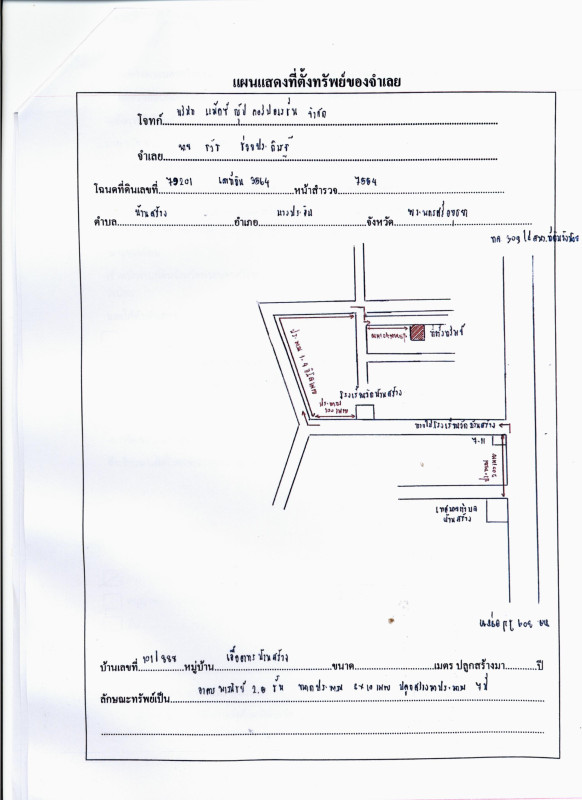 แผนแสดงที่ตั้งทรัพย์ของจำเลย
โจทก์ บริษัท จำกัด
จำเลย นาย
โฉนดที่ดินเลขที่ 79201 เลขที่ดิน 3864 หน้าสำรวจ 7554
ตำบล บ้านสร้าง อำเภอ บางปะอิน จังหวัด พระนครศรีอยุธยา
ทล 309
ที่ตั้งทรัพย์
ประมาณ 1.4 กิโลเมตร
โรงเรียนวัดบ้านสร้าง
ประมาณ 200 เมตร
ทางไปโรงเรียนวัดบ้านสร้าง
7-11
ประมาณ 200 เมตร
เทศบาลตำบล
บ้านสร้าง
ทล 309
บ้านเลขที่ 101/888 หมู่บ้าน เอื้ออาทรบ้านสร้าง ขนาด เมตร ปลูกสร้างมา ปี
ลักษณะทรัพย์เป็น อาคารพาณิชย์ ชั้น ขนาดประมาณ เมตร ปลูกสร้างมาประมาณ ปี